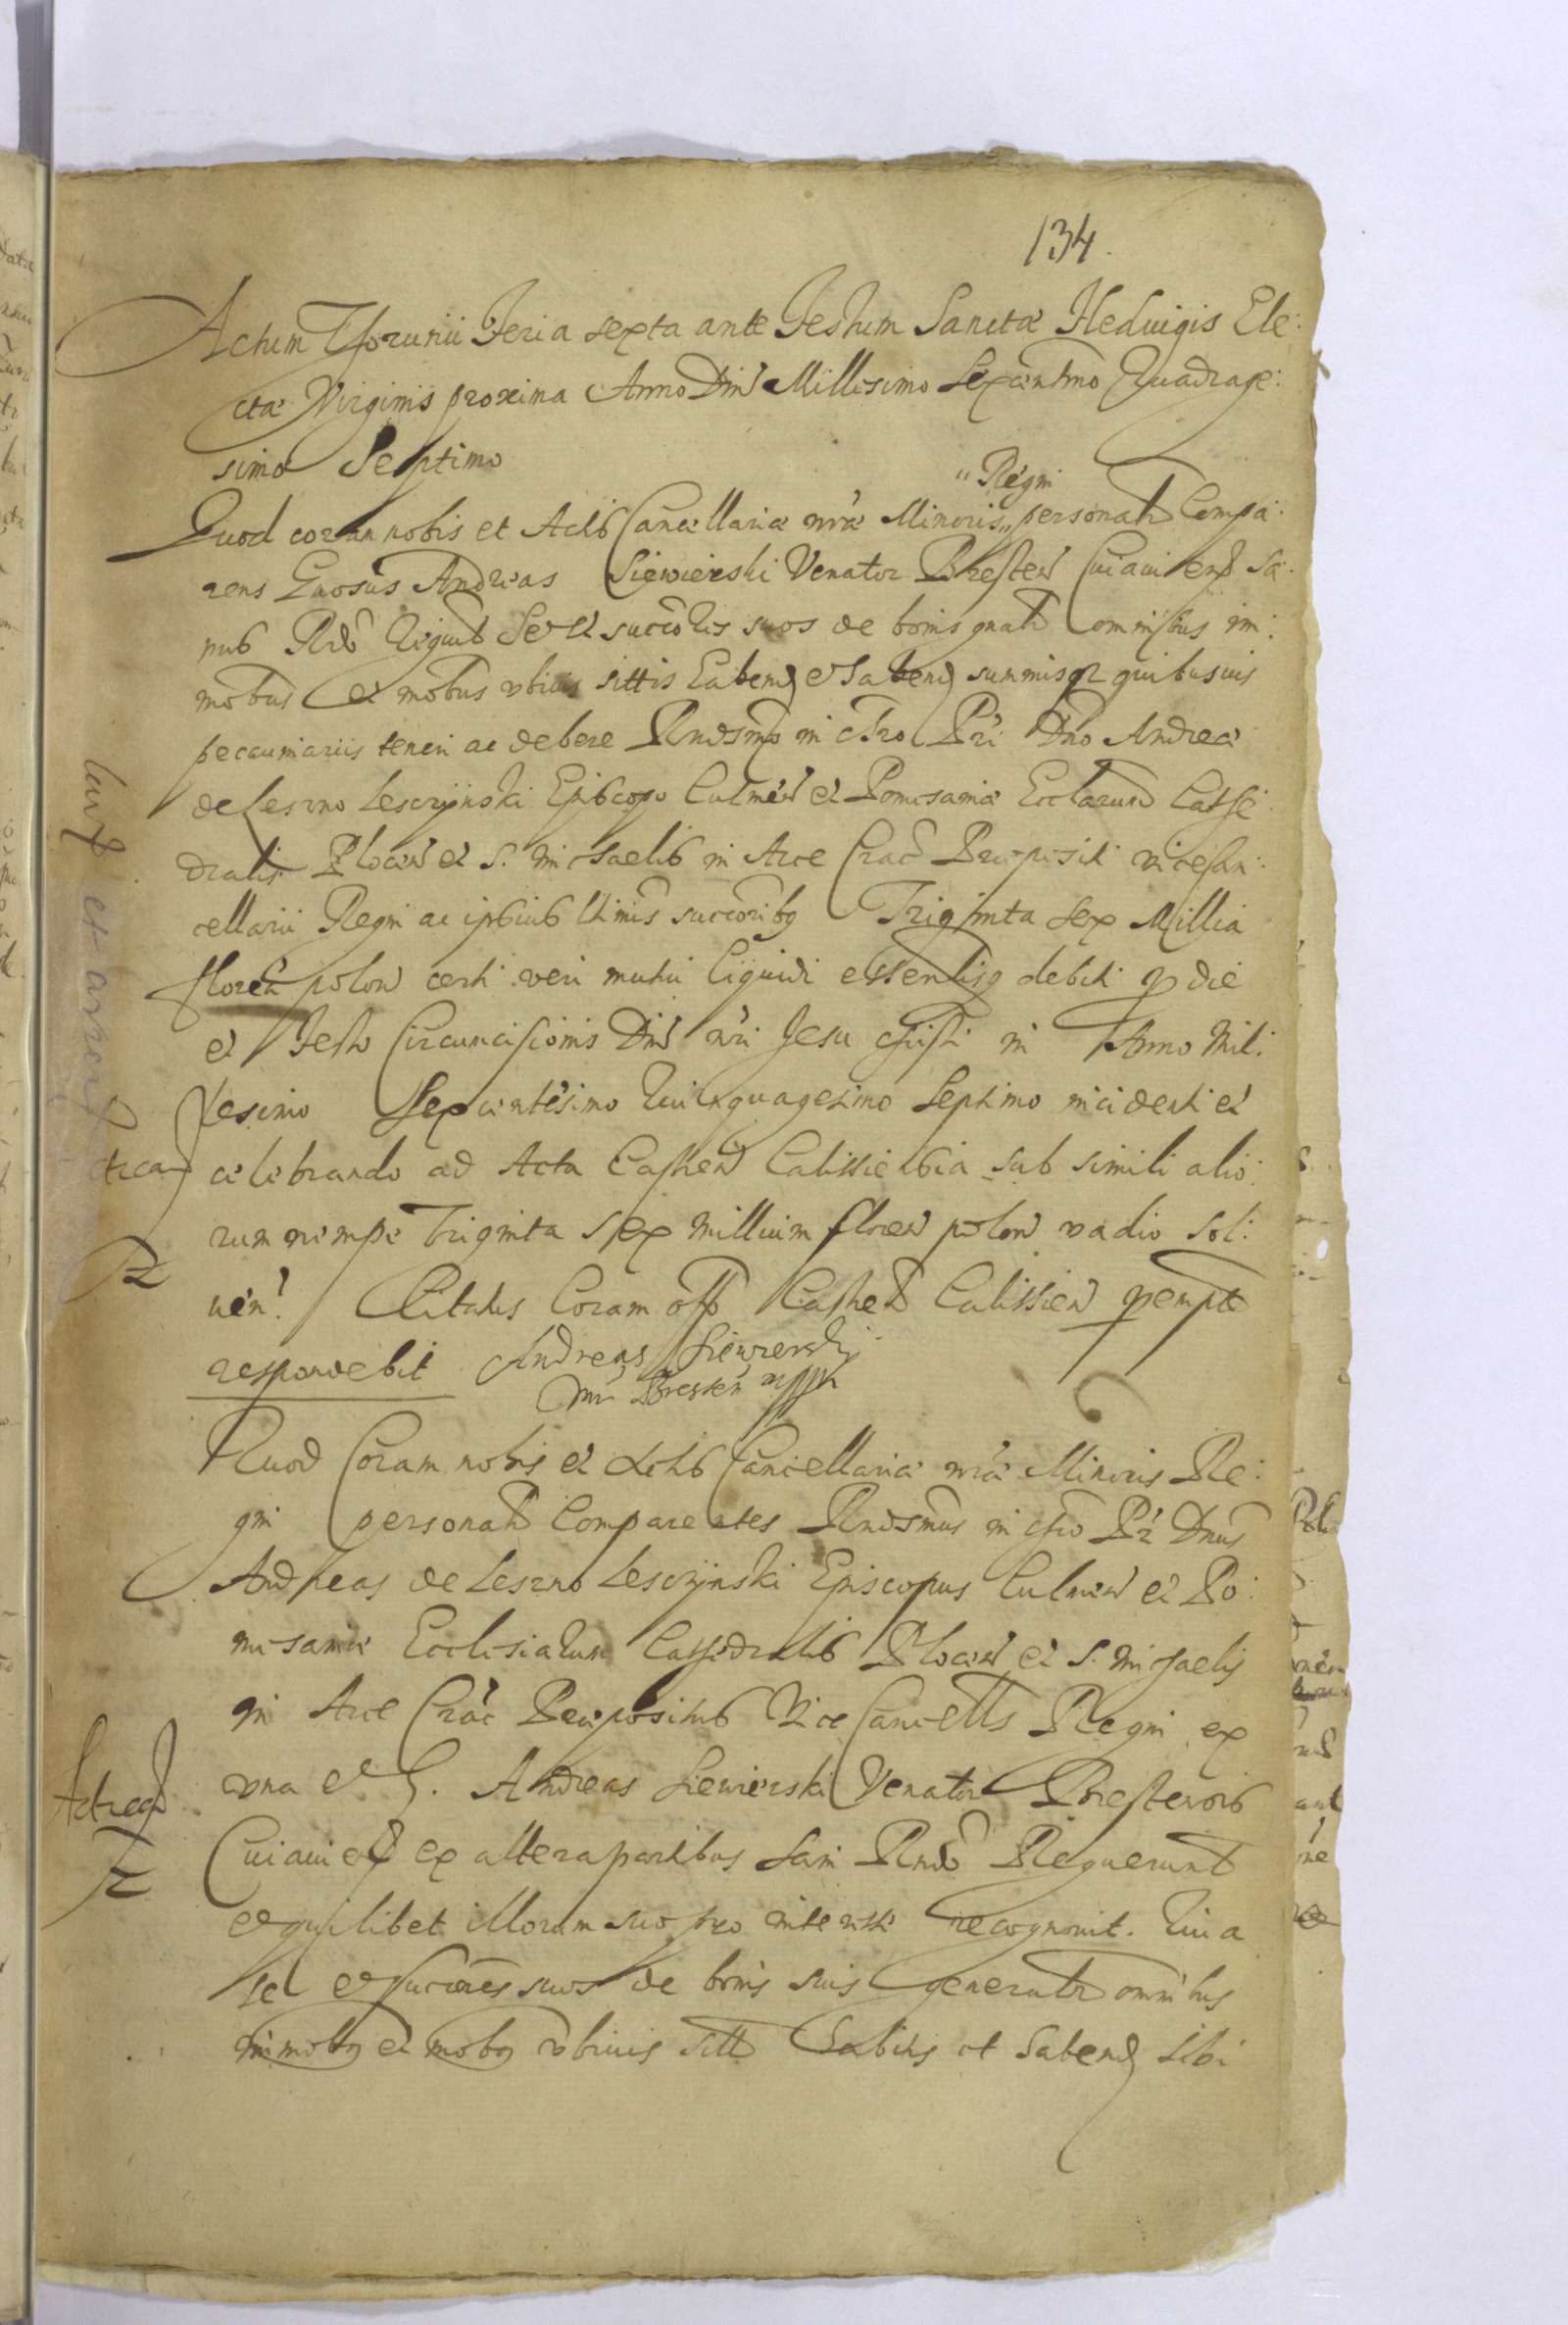 134.
Actum Thorunii Feria sexta ante Festum Sanctæ Heduigis Ele:
ctæ Virginis proxima Anno Dni Millesimo Sexcentmo Quadrage:
simo Septimo
Quod coram nobis et Actis Cancellariæ nræ Minoris "Regni personalr Compa:
rens Gnosus Andreas Siewierski Venator Bresten Cuiauien sa:
nus
mobus et mobus vbiuis sittis habens et habend summisq quibusuis
pecuniariis teneri ac debere Rndsmo in Chro Pri Dno Andreæ
de Leszno Lesczÿnski Episcopo Culmen et Pomesaniæ Ecclarum Cathe
dralis Plocen et S. Michaelis in Arce Crac Præposito vicecan:
cellario Regni ac ipsius ltimis succoribq Triginta Sex Millia
floren polon certi veri mutui liquidi essentialisq debiti p die
et Festo Circumcisionis Dni nri Jesu Christi in Anno Mil:
lesimo Sexcentesimo Quinquagesimo Septimo incidenti et
celebrando ad Acta Castren Calissiensia sub simili alio:
rum nempe Triginta Sex millium floren polon vadio sol:
uen. Citatus Coram offo Castren Calissien pempte
respondebit Andreas Siewierski
Vnr Bresten mpp
Quod Coram nobis et Actis Cancellariæ nræ Minoris Re:
gni personalr Comparentes Rndsmus in Chro Pr Dnus
Andreas de Leszno Lesczÿnski Episcopus Culmen et Po:
mesaniæ Ecclesiarum Cathedralis Plocen et S. Michaelis
in Arce Crac Præpositus Vice Cancells Regni ex
vna et G. Andreas Siewierski Venator Brestensis
Cuiauien ex altera partibus sani
et quilibet illorum suo pro interesse recognouit. Quia
se et succores suos de bonis suis generalr omnibus
immobq et mobq vbiuis sitt habitis et habend sibi